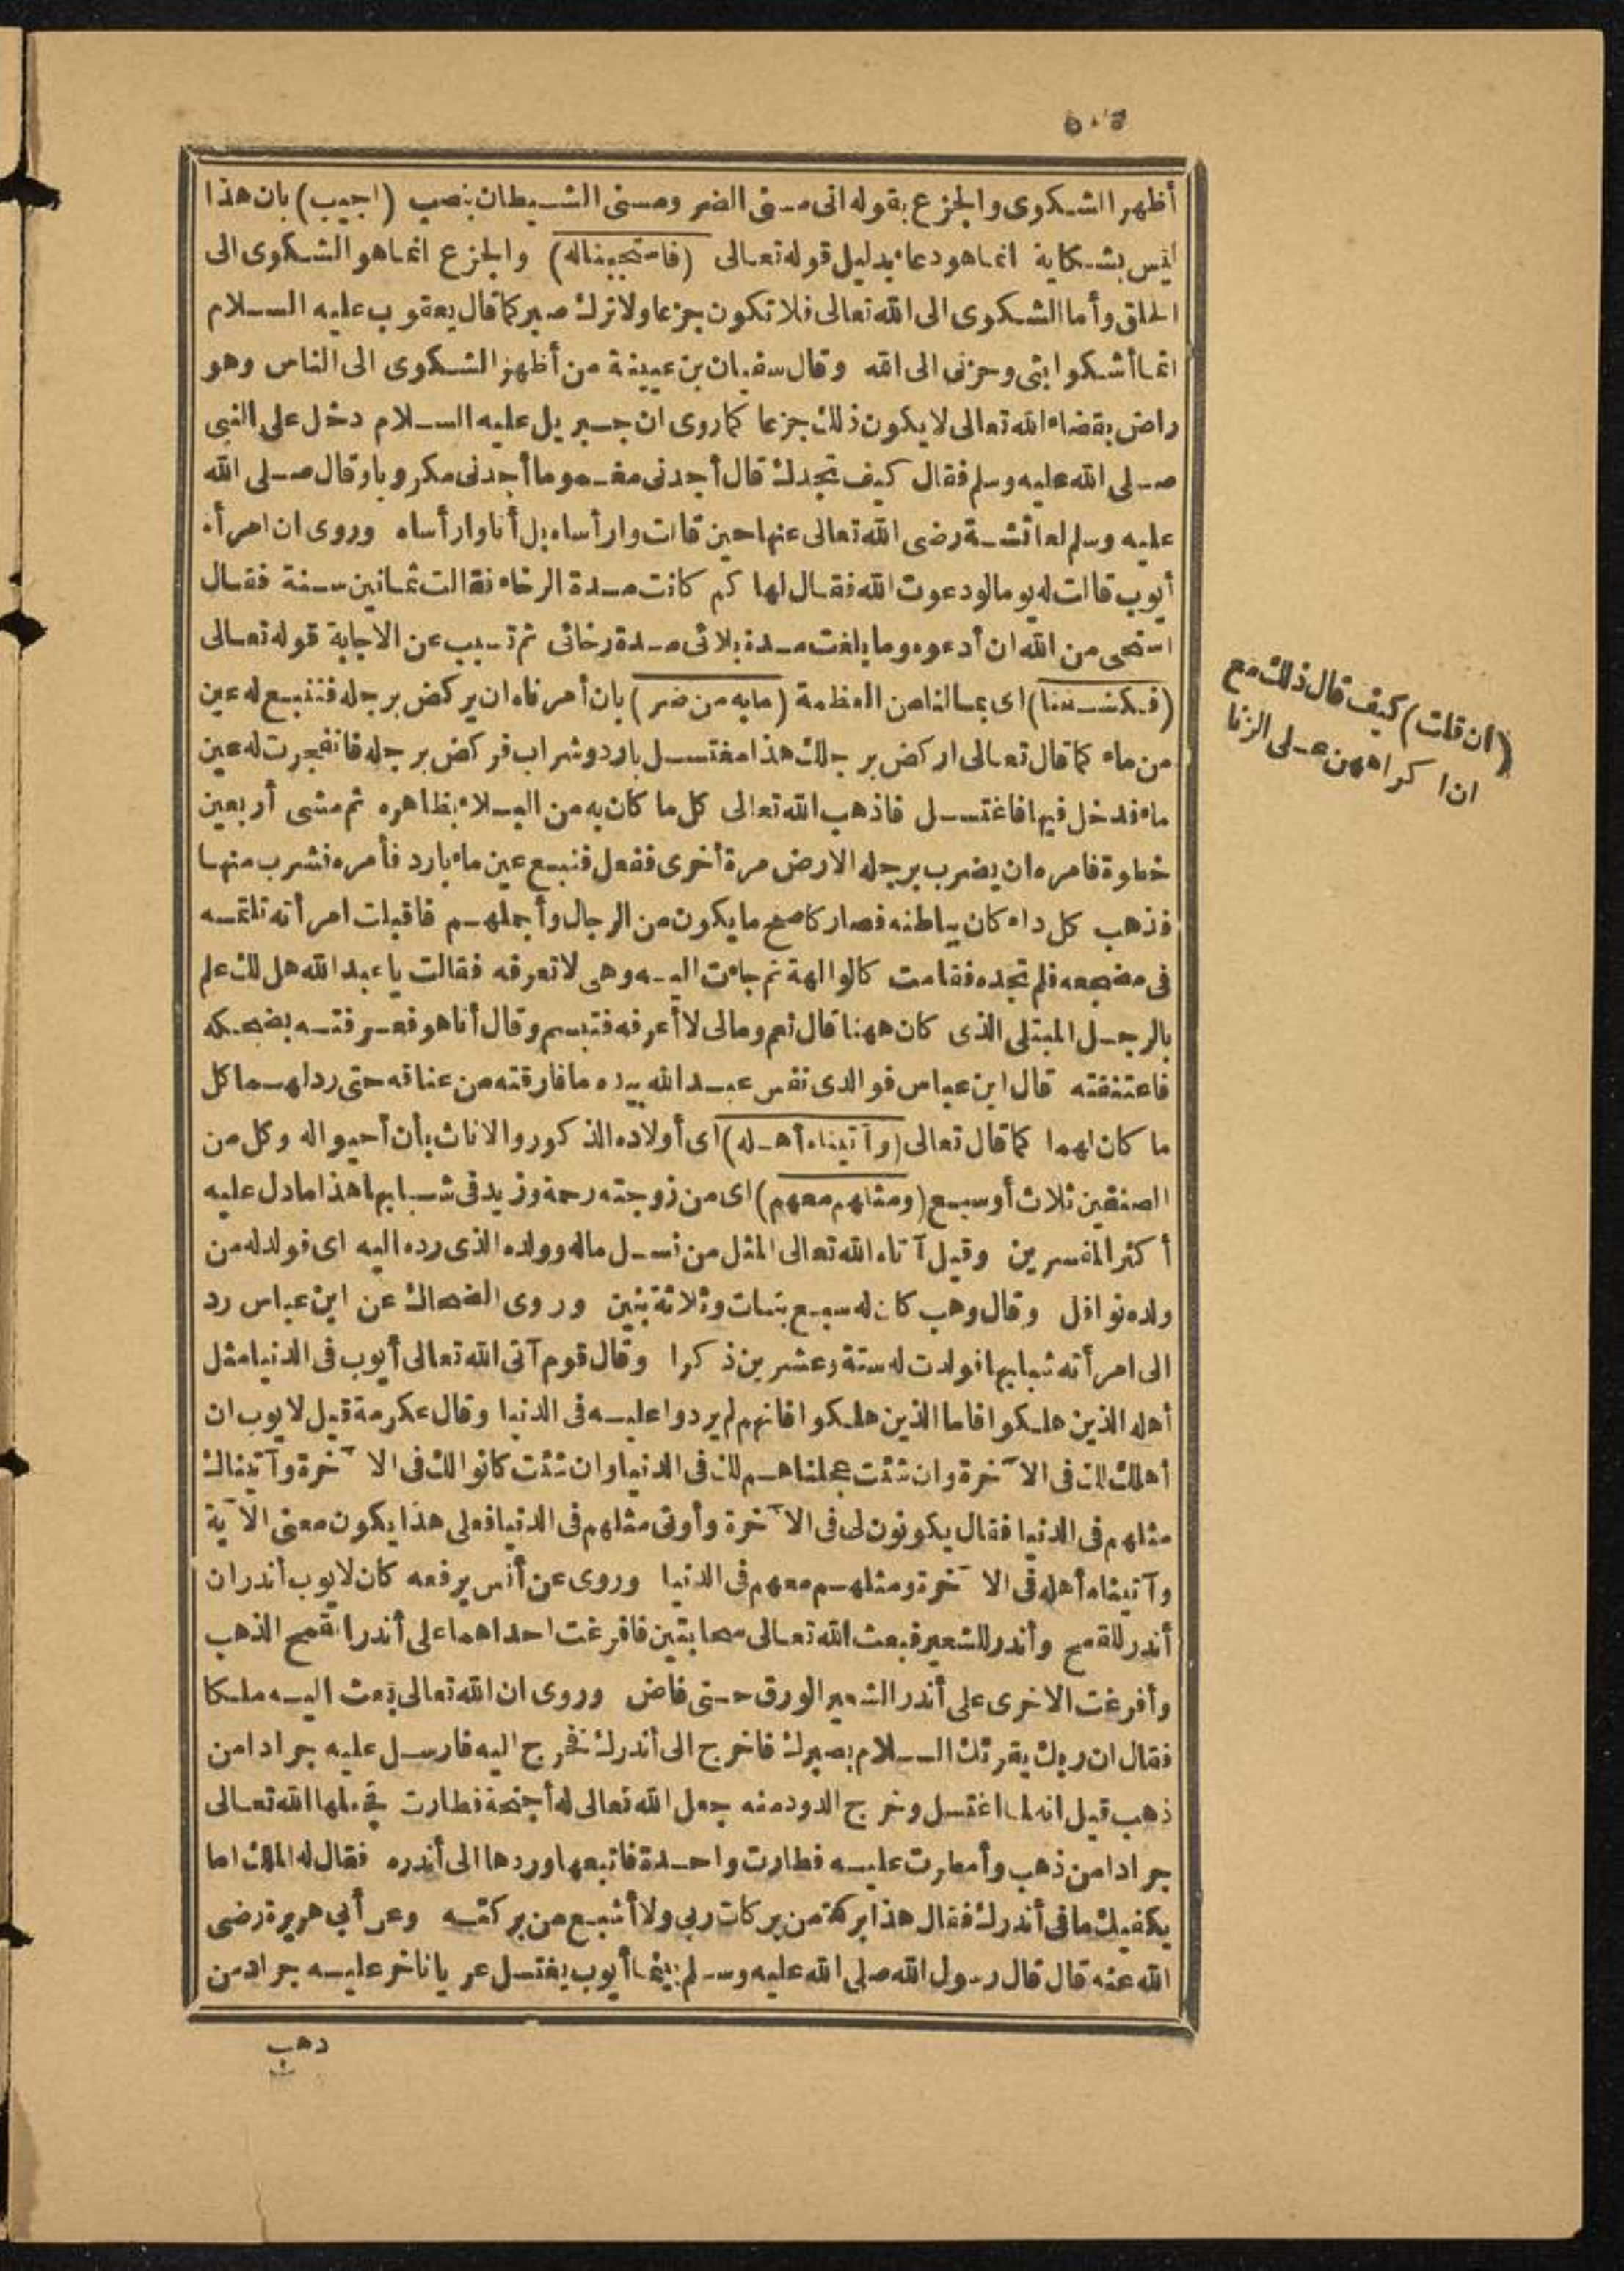 ٥٠٦
أظهر الشكوى والجزع بقوله انى مسنى الضر ومسنى الشيطان بنصب (اجيب) بان هذا
ليس بشكاية انما هو دعاء بدليل قوله تعالى (فاستجبناله) والجزع انما هو الشكوى الى
الخلق وأما الشكوى الى الله تعالى فلا تكون جزعا ولا ترك صبر كما قال يعقوب عليه السلام
انما أشكو ابثى وحزنى الى الله وقال سفيان بن عيينة من أظهر الشكوى الى الناس وهو
راض بقضاء الله تعالى لا يكون ذلك جزعا كما روى ان جبريل عليه السلام دخل على النبى
صلى الله عليه وسلم فقال كيف تجدك قال أجدنى مغموما أجدنى مكروبا وقال صلى الله
عليه وسلم لعائشة رضى الله تعالى عنها حين قالت وارأساه بل أنا وارأساه وروى ان امرأة
أيوب قالت له يوما لودعوت الله فقال لها كم كانت مدة الرخاء فقالت ثمانين سنة فقال
استحى من الله ان أدعوه وما بلغت مدة بلائى مدة رخائى ثم تسبب عن الاجابة قوله تعالى
(فكشفنا) اى بمالنا من العظمة (مابه من ضر) بان أمرناه ان يركض برجله فننبع له عين
من ماء كما قال تعالى اركض برجلك هذا مغتسل بارد وشراب فركض برجله فانفجرت له عين
ماء فدخل فيها فاغتسل فاذهب الله تعالى كل ما كان به من البلاء بظاهره ثم مشى أربعين
خطوة فامره ان يضرب برجله الارض مرة أخرى ففعل فنبع عين ماء بارد فأمره فشرب منها
فذهب كل داء كان بباطنه فصار كاصح ما يكون من الرجال وأجملهم فاقبلت امرأته تلتمسه
فى مضجعه فلم تجده فقامت كالوالهة ثم جاءت اليه وهى لا تعرفه فقالت يا عبد الله هل لك علم
بالرجل المبتلى الذى كان ههنا قال نعم ومالى لا أعرفه فتبسم وقال أنا هو فعرفته بضحكه
فاعتنقته قال ابن عباس فوالذى نفس عبد الله بيده ما فارقته من عناقه حتى ردلهما كل
ما كان لهما كما قال تعالى (وآتيناه أهله) اى أولاده الذكور والاناث بأن أحيواله وكل من
الصنفين ثلاث أوسبع (ومثلهم معهم) اى من زوجته رحمة وزيد فى شبابها هذا مادل عليه
أكثر المفسرين وقيل آتاه الله تعالى المثل من نسل ماله وولده الذى رده اليه اى فولدله من
ولده نوافل وقال وهب كان له سبع بنات وثلاثة بنين وروى الضحاك عن ابن عباس رد
الى امرأته شبابها فولدت له ستة وعشرين ذكرا وقال قوم آتى الله تعالى أيوب فى الدنيا مثل
أهله الذين هلكوا فاما الذين هلكوا فانهم لم يردوا عليه فى الدنيا وقال عكرمة قيل لايوب ان
أهلك لك فى الآخرة وان شئت عجلناهم لك فى الدنيا وان شئت كانوا لك فى الآخرة وآتيناك
مثلهم فى الدنيا فقال يكونون لى فى الآخرة وأوتى مثلهم فى الدنيا فعلى هذا يكون معنى الآية
وآتيناه أهله فى الآخرة ومثلهم معهم فى الدنيا وروى عن أنس يرفعه كان لايوب أندران
أندر للقمح وأندر للشعير فبعث الله تعالى سحابتين فافرغت احداهما على أندر القمح الذهب
وأفرغت الاخرى على أندر الشعير الورق حتى فاض وروى ان الله تعالى بعث اليه ملكا
فقال ان ربك يقرئك السلام بصبرك فاخرج الى أندرك فخرج اليه فارسل عليه جرادا من
ذهب قيل انه لما اغتسل وخرج الدود منه جعل الله تعالى له أجنحة فطارت فجعلها الله تعالى
جرادا من ذهب وأمطرت عليه فطارت واحدة فاتبعها وردها الى أندره فقال له الملك اما
يكفيك مافى أندرك فقال هذا بركة من بركات ربي ولا أشبع من بركته وعن أبي هريرة رضى
الله عنه قال قال رسول الله صلى الله عليه وسلم بينما أيوب يغتسل عريانا خر عليه جراد من
ذهب
(ان قلت) كيف قال ذلك مع
ان اكراههن على الزنا